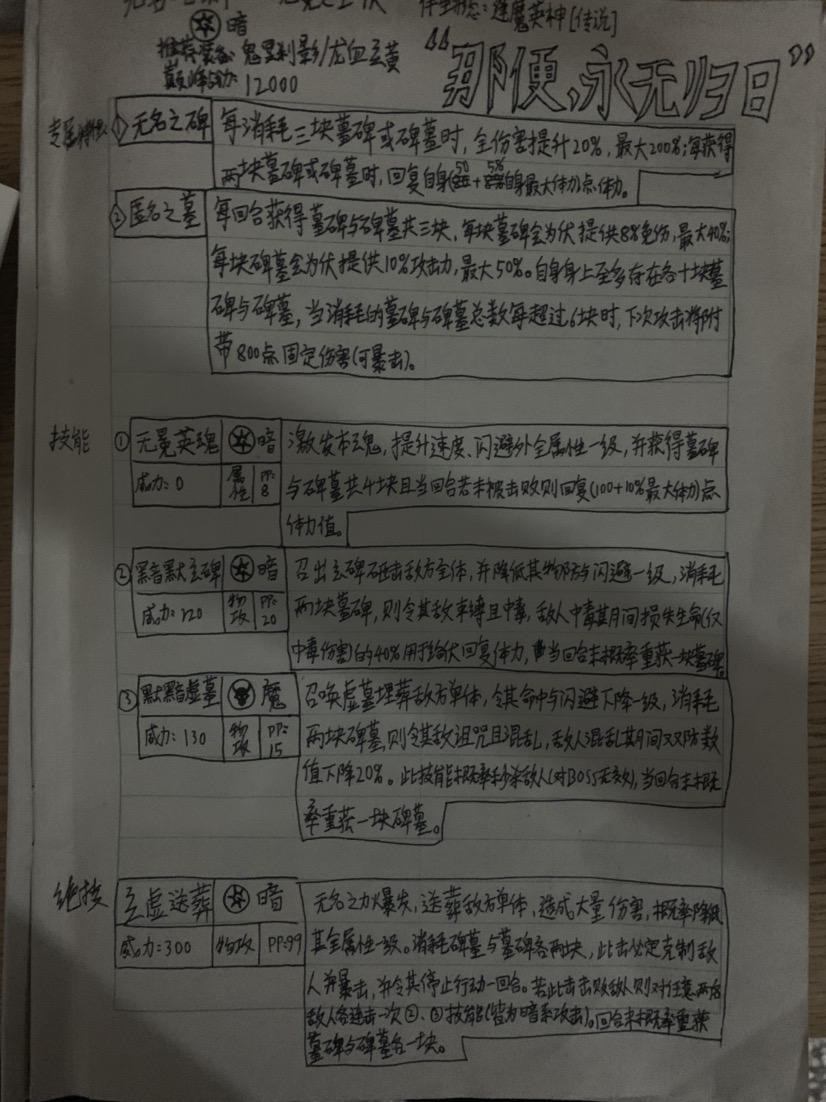 暗
体力状态：逢魔英神[传说]
推荐装备：鬼灵利影/龙血玄黄
巅峰战力：12000
“那便，永无归日”
专属特性：
①无名之碑
每消耗三块墓碑或碑墓时，全伤害提升20%，最大200%；每获得
两块墓碑或碑墓时，回复自身(50+5%自身最大体力)点体力。
②匿名之墓
每回合获得墓碑与碑墓共三块，每块墓碑会为伏提供8%免伤，最大40%；
每块碑墓会为伏提供10%攻击力，最大50%。自身身上至多存在各十块墓
碑与碑墓，当消耗的墓碑与碑墓总数每超过6块时，下次攻击将附
带800点固定伤害(可暴击)。
技能
①无冕英魂 暗
威力：0 属性 PP：8
激发本魂，提升速度、闪避外全属性一级，并获得墓碑
与碑墓共4块且当回合若未被击败则回复(100+10%最大体力)点
体力值。
②黑暗默玄碑 暗
威力：120 物攻 PP：20
召出玄碑砸击敌方全体，并降低其物防与闪避一级，消耗
两块墓碑，则令其敌束缚且中毒，敌人中毒其月间损失生命(仅
中毒伤害)的40%用于给伏回复体力，当回合末概率重获一块墓碑。
③默黯虚墓 魔
威力：130 物攻 PP：15
召唤虚墓埋葬敌方单体，令其命中与闪避下降一级，消耗
两块碑墓，则令其敌诅咒且混乱，敌人混乱其月间双防数
值下降20%。此技能概率秒杀敌人(对BOSS无效)，当回合末概
率重获一块碑墓。
绝技
玄虚送葬 暗
威力：300 物攻 PP：99
无名之力爆发，送葬敌方单体，造成大量伤害，概率降低
其全属性一级。消耗碑墓与墓碑各两块，此击必定克制敌
人并暴击，并令其停止行动一回合。若此击击败敌人则对任意两名
敌人各连击一次②、③技能(皆为暗系攻击)。回合末概率重获
墓碑与碑墓各一块。